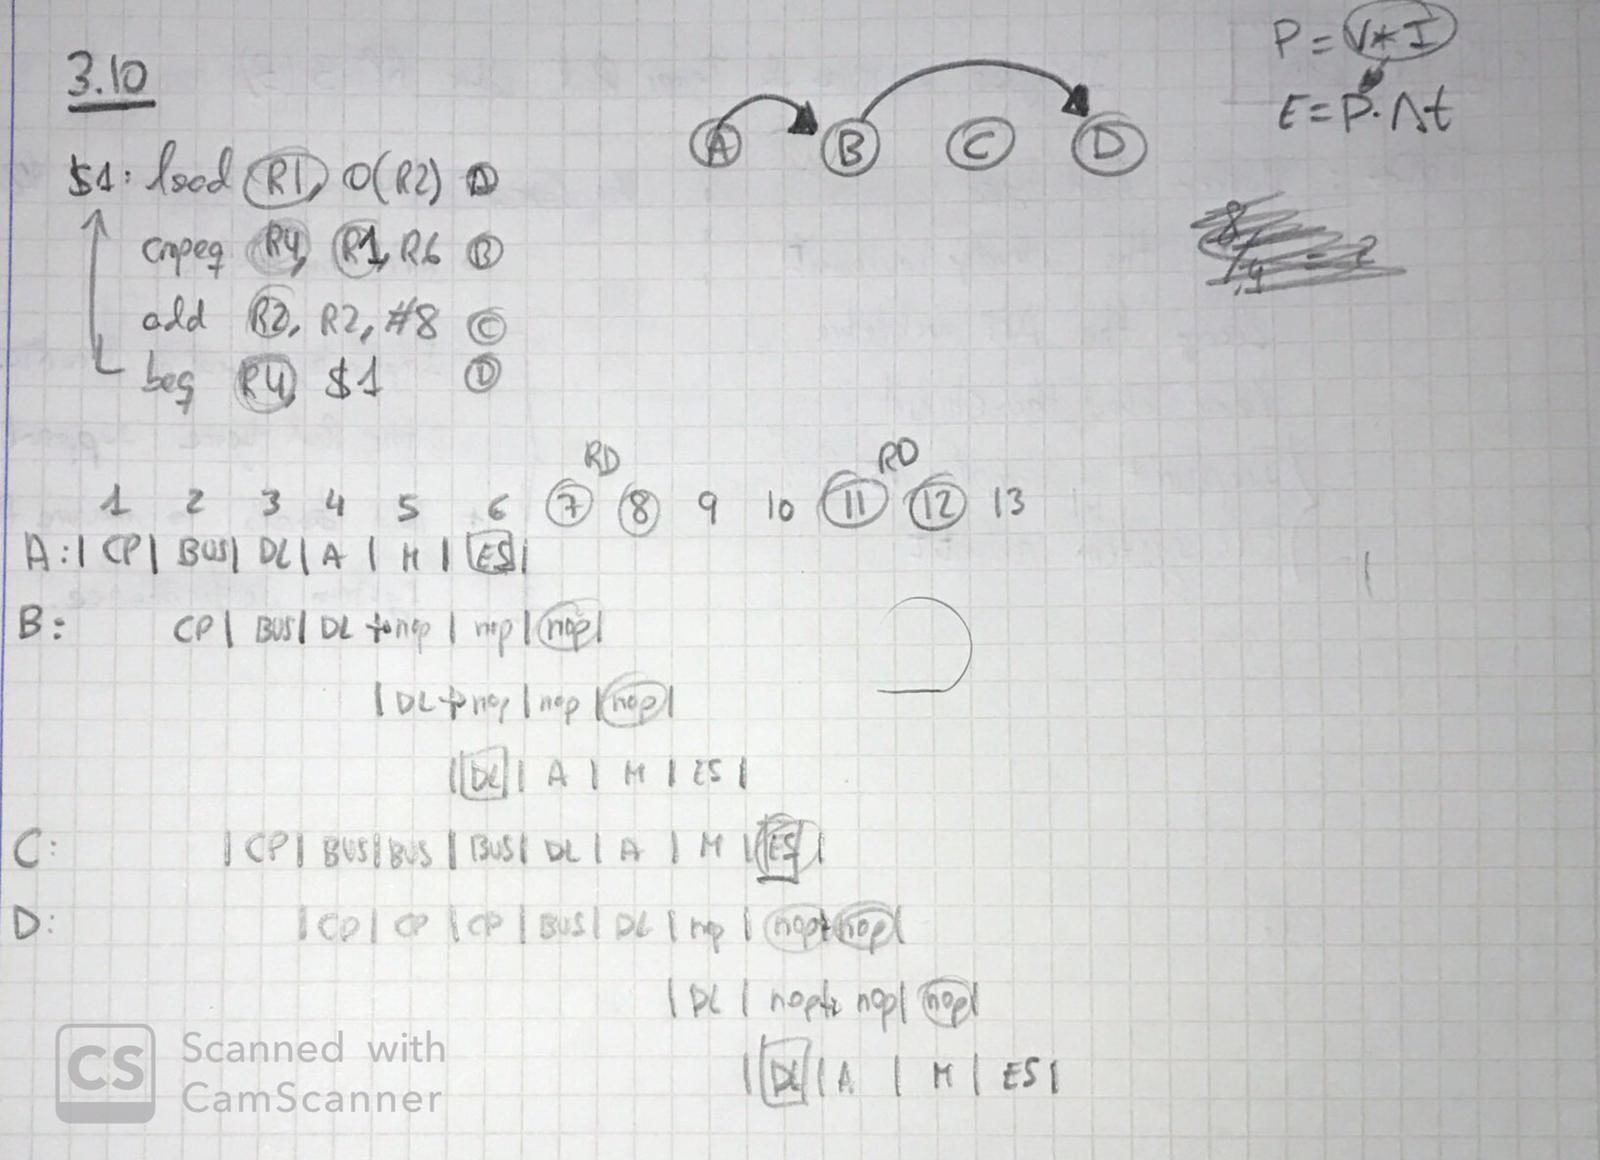 3.10
P = V * I
E = P · Δt
A B C D
$1: load R1, 0(R2) A
cmpeq R4, R1, R6 B
add R2, R2, #8 C
beq R4, $1 D
RD RD
1 2 3 4 5 6 7 8 9 10 11 12 13
A: | CP | BUS | DL | A | M | ES |
B: CP | BUS | DL nop | nop | nop |
| DL nop | nop | nop |
| DL | A | M | ES |
C: | CP | BUS | BUS | BUS | DL | A | M | ES |
D: | CP | CP | CP | BUS | DL | nop | nop nop |
| DL | nop nop | nop |
| DL | A | M | ES |
CS Scanned with
CamScanner